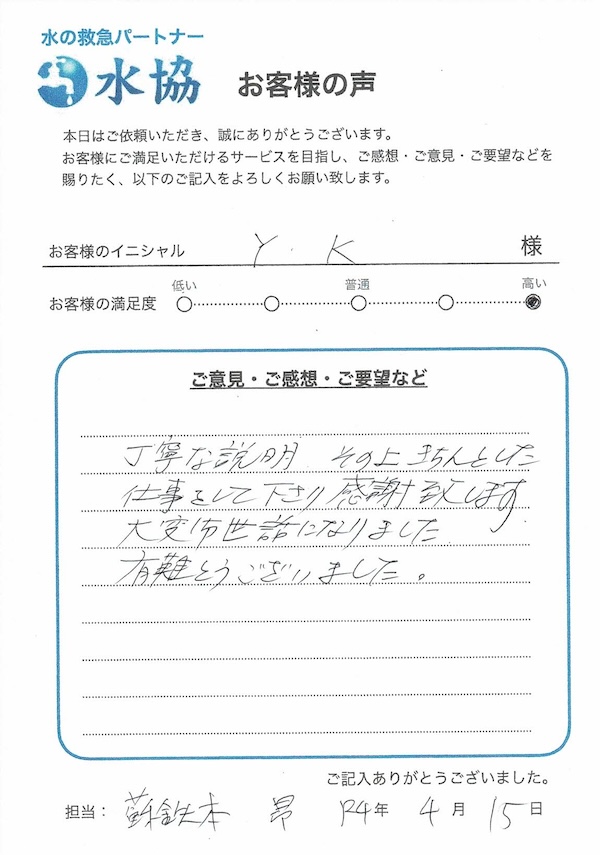 水の救急パートナー
水協 お客様の声
本日はご依頼いただき、誠にありがとうございます。
お客様にご満足いただけるサービスを目指し、ご感想・ご意見・ご要望などを
賜りたく、以下のご記入をよろしくお願い致します。
お客様のイニシャル Y・K 様
低い 普通 高い
お客様の満足度
ご意見・ご感想・ご要望など
丁寧な説明 その上 きちんとした
仕事をして下さり 感謝致します
大変お世話になりました
有難とうございました。
ご記入ありがとうございました。
担当: 蘇鉄本 昴 R4年 4月 15日